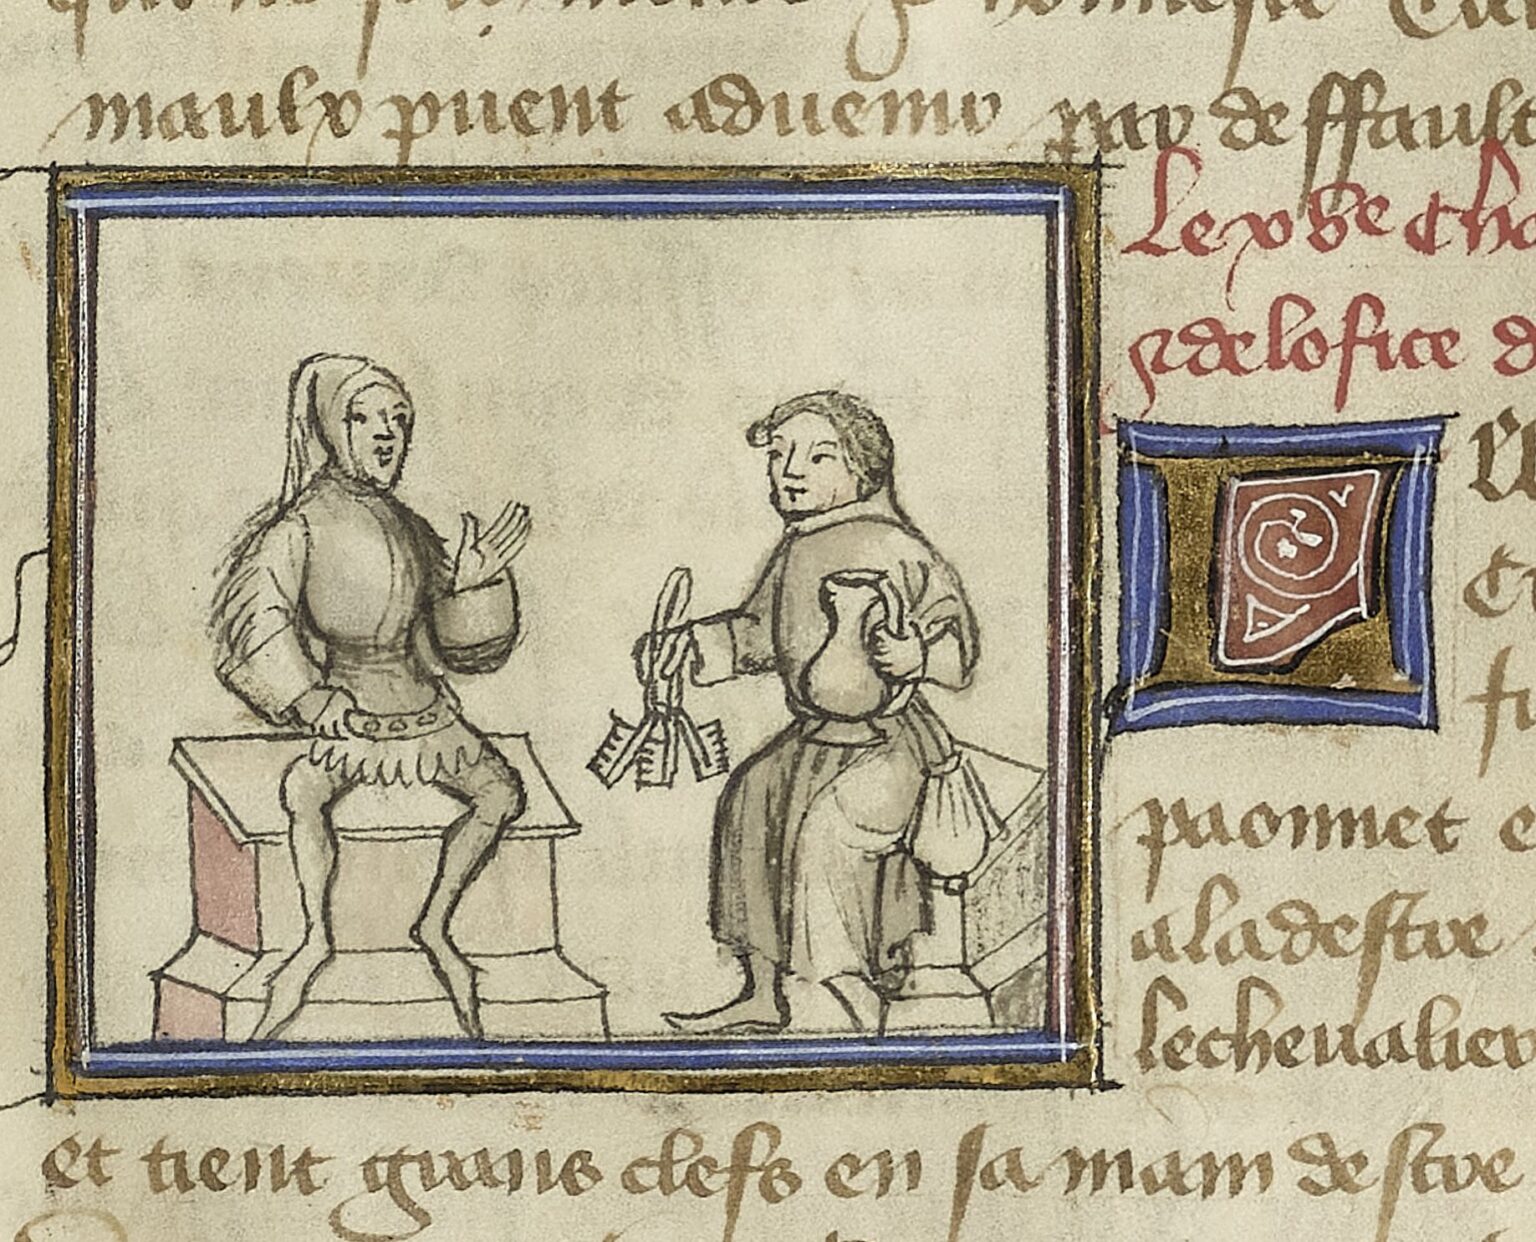 maulx puent aduenir par deffault
Le vᵉ cha
& de lofice d
paonnet e
a la destre
le cheualier
et tient grans clefs en sa main destre